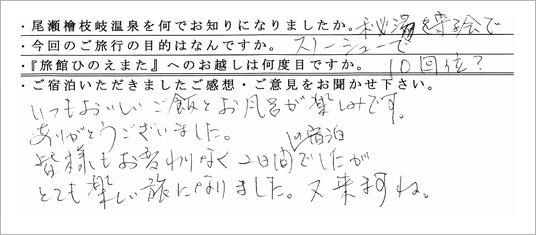 ・尾瀬檜枝岐温泉を何でお知りになりましたか。秘湯を守る会で
・今回のご旅行の目的はなんですか。スノーシューで
・『旅館ひのえまた』へのお越しは何度目ですか。10回位？
・ご宿泊いただきましたご感想・ご意見をお聞かせ下さい。
いつもおいしいご飯とお風呂が楽しみです。
ありがとうございました。
皆様もお変わりなく2日間の宿泊でしたが
とても楽しい旅になりました。又来ますね。